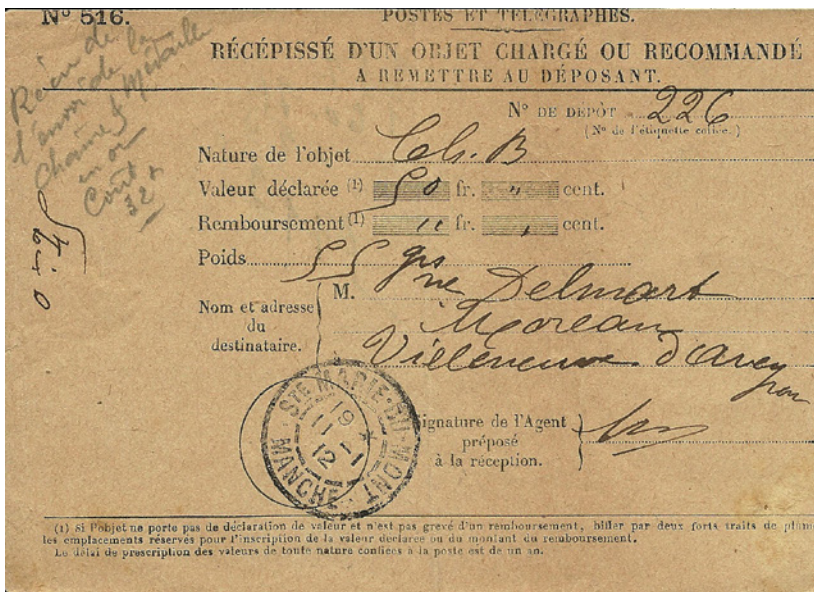 N° 516.
POSTES ET TÉLÉGRAPHES.
RÉCÉPISSÉ D'UN OBJET CHARGÉ OU RECOMMANDÉ
A REMETTRE AU DÉPOSANT.
N° DE DÉPÔT 226
(N° de l'étiquette collée.)
Reçu de la
l'envoi de la
Chaîne & Médaille
en or
Coût
32
Nature de l'objet Ch. B
Valeur déclarée (1) 50 fr. " cent.
Remboursement (1) " fr. " cent.
Poids 55 grs
Nom et adresse
du
destinataire.
M. Delmart
Moreau
Villeneuve d'Aveyron
STE MARIE-DU-MONT
19
11
12
MANCHE
Signature de l'Agent
préposé
à la réception.
(1) Si l'objet ne porte pas de déclaration de valeur et n'est pas grevé d'un remboursement, biffer par deux forts traits de plume
les emplacements réservés pour l'inscription de la valeur déclarée ou du montant du remboursement.
Le délai de prescription des valeurs de toute nature confiées à la poste est de un an.